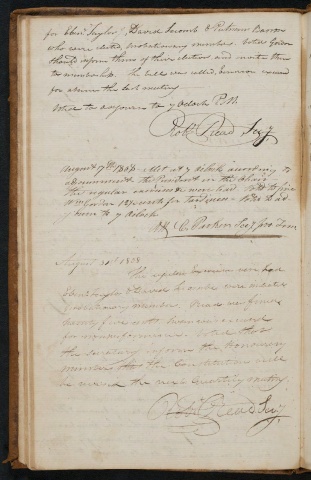 for Eben Taylor, David Secomb & Putnam Barton
who were elected probationary members. Voted
inform them of their election and invite them
to membership. The bills were called, Emerson excused
for absence the last meeting
Voted to adjourn to 7 oclock P.M.
Robt. Read Secy
August 17th 1808 Met at 7 oclock according to
adjournment the President in the Chair
the regular exercises were read Voted to fine
Wm Gordon 12½ cents for tardiness Voted to ad
journ to 7 oclock
Wm C. Parker Secy pro Tem
August 31st 1808
The regular exercises were had
Eben Taylor & David Secomb were initiated
probationary members. Read was fined
twenty five cents
for nonperformance. Voted that
the Secretary inform the honorary
members that the Constitution will
be revised the next quarterly meeting.
R. Read Secy